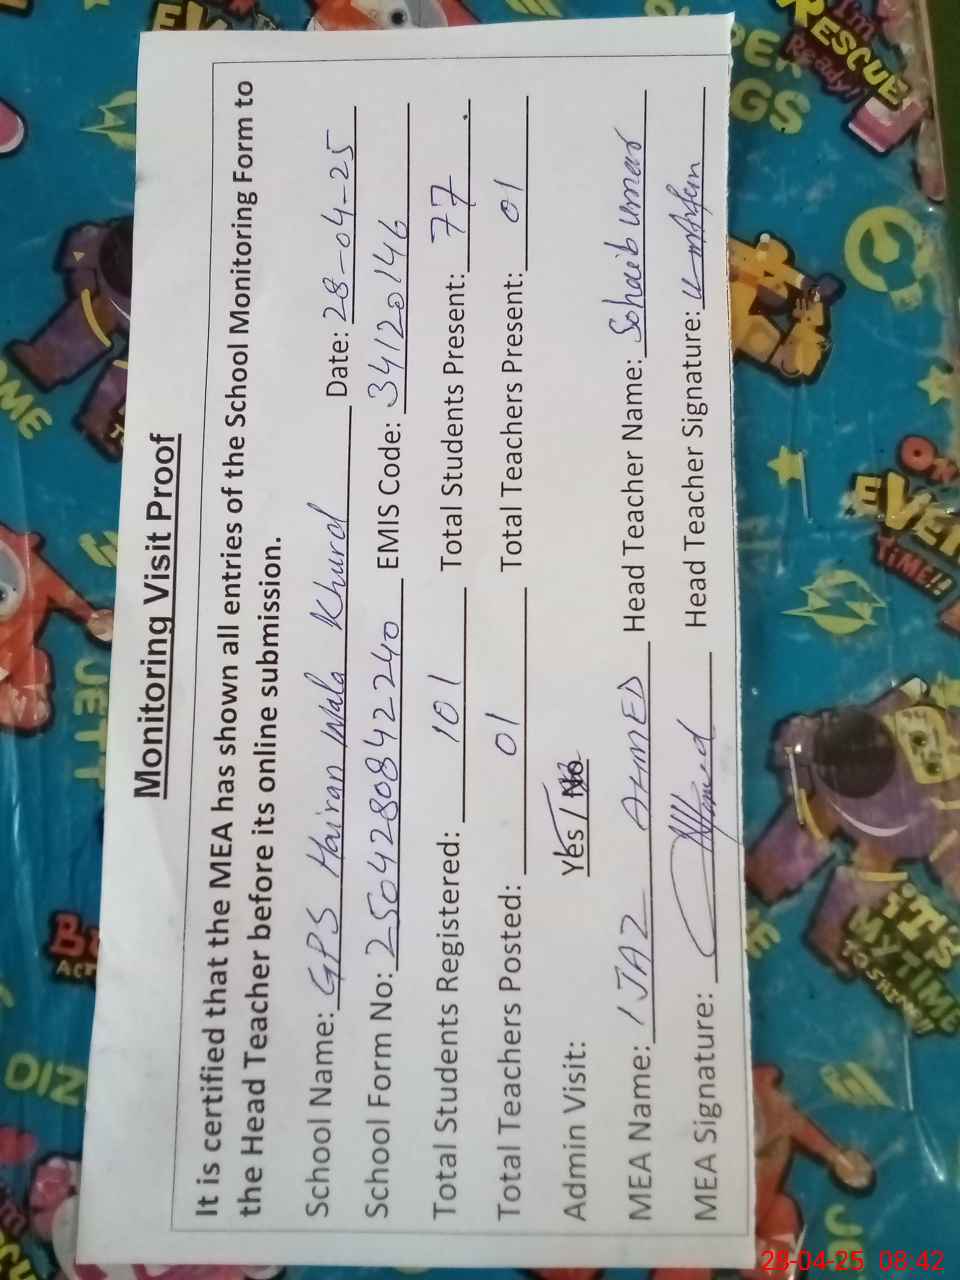 Monitoring Visit Proof
It is certified that the MEA has shown all entries of the School Monitoring Form to
the Head Teacher before its online submission.
School Name: GPS Hairan Wala Khurd Date: 28-04-25
School Form No: 25042808422240 EMIS Code: 34120146
Total Students Registered: 101 Total Students Present: 77
Total Teachers Posted: 01 Total Teachers Present: 01
Admin Visit: Yes / No
MEA Name: IJAZ AHMED Head Teacher Name: Sohaib Umar
MEA Signature: Ahmed Head Teacher Signature:
I'm
RESCUE
Ready!!
EVER
TIME!!
IT'S
MY TIME
TO SHINE!!
JETT
DIZ
28-04-25 08:42